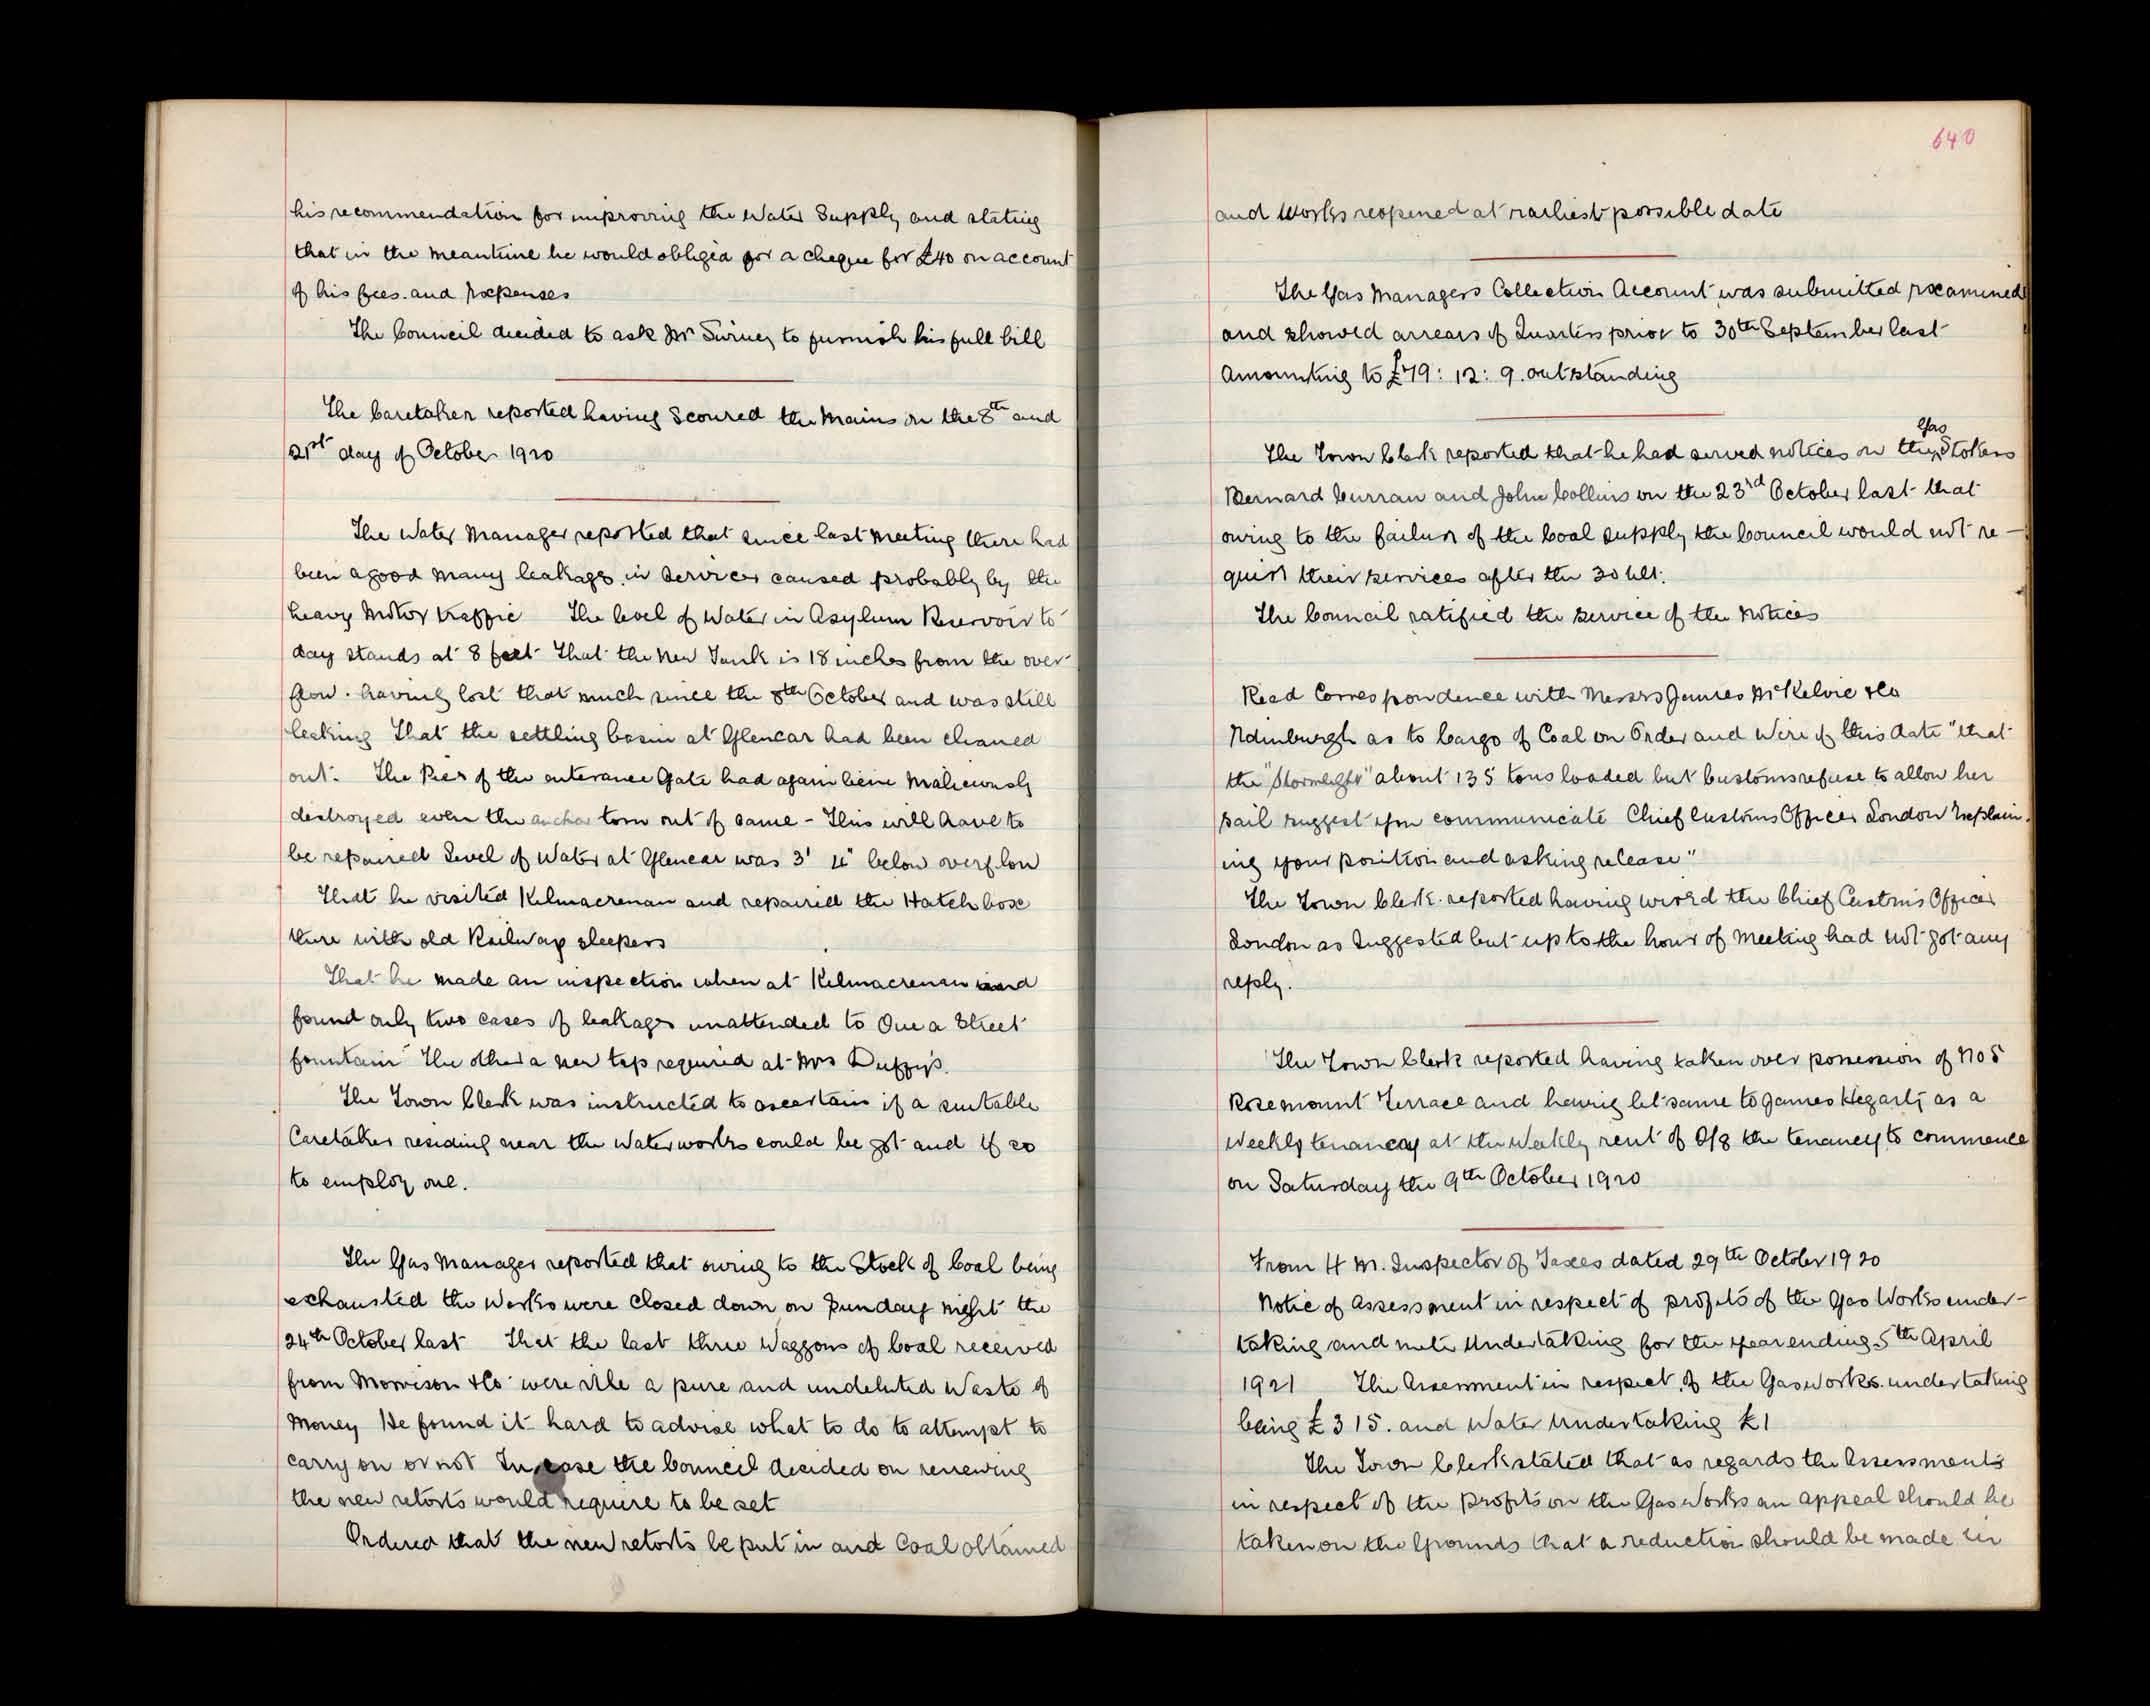 his recommendation for improving the Water Supply and stating
that in the meantime he would obliged for a cheque for £40 on account
of his fees and Expenses
The Council decided to ask Mr Swiney to furnish his full bill
The Caretaker reported having Scoured the Mains on the 8th and
21st day of October 1920
The Water Manager reported that since last Meeting there had
been a good many leakages in Services caused probably by the
heavy Motor traffic The level of Water in Asylum Reservoir to
day stands at 8 feet That the New Tank is 18 inches from the over
flow. having lost that much since the 8th October and was still
leaking That the settling basin at Glencar had been cleaned
out. The Pier of the enterance Gate had again been Maliciously
destroyed even the anchor torn out of same - This will have to
be repaired Level of Water at Glencar was 3' 4" below overflow
That he visited Kilmacrenan and repaired the Hatch box
there with old Railway sleepers
That he made an inspection when at Kilmacrenan and
found only two cases of leakages unattended to One a Street
fountain The other a new tap required at Mrs Duffy's.
The Town Clerk was instructed to ascertain if a suitable
Caretaker residing near the Waterworks could be got and if so
to employ one.
The Gas Manager reported that owing to the Stock of Coal being
exhausted the Works were closed down on Sunday night the
24th October last That the last three Waggons of Coal received
from Morrison & Co were vile a pure and undeluted Waste of
Money He found it hard to advise what to do to attempt to
carry on or not In case the Council decided on renewing
the new retorts would require to be set
Ordered that the new retorts be put in and Coal obtained
640
and Works reopened at earliest possible date
The Gas Managers Collection Account was submitted examined
and showed arrears of Quarters prior to 30th September last
Amounting to £79: 12: 9. outstanding
The Town Clerk reported that he had served notices on the Gas Stokers
Bernard Curran and John Collins on the 23rd October last that
owing to the failure of the Coal supply the Council would not re-
quire their services after the 30 ult.
The Council ratified the service of the Notices
Read Correspondence with Messrs James McKelvie & Co
Edinburgh as to Cargo of Coal on Order and Wire of this date "that
the "Stormlight" about 135 tons loaded but Customs refuse to allow her
sail suggest you communicate Chief Customs Officer London Explain-
ing your position and asking release"
The Town Clerk reported having wired the Chief Customs Officer
London as Suggested but up to the hour of Meeting had not got any
reply.
The Town Clerk reported having taken over possession of No 5
Rosemount Terrace and having let same to James Hegarty as a
Weekly tenancy at the Weekly rent of 0/8 the tenancy to commence
on Saturday the 9th October 1920
From H M. Inspector of Taxes dated 29th October 1920
Notice of Assessment in respect of profits of the Gas Works under-
taking and Undertaking for the year ending 5th April
1921 The Assessment in respect of the Gasworks undertaking
being £315. and Water Undertaking £1
The Town Clerk stated that as regards the Assessments
in respect of the profits on the Gas Works an appeal should be
taken on the Grounds that a reduction should be made in